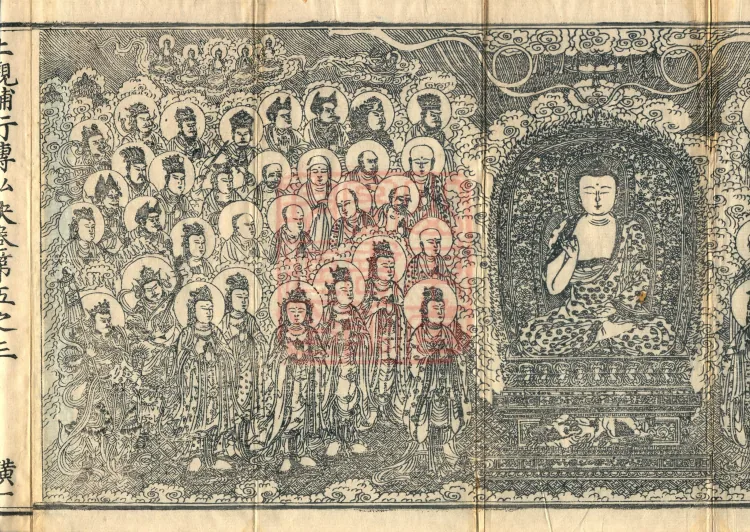 止觀輔行傳弘決卷第五之三 橫一